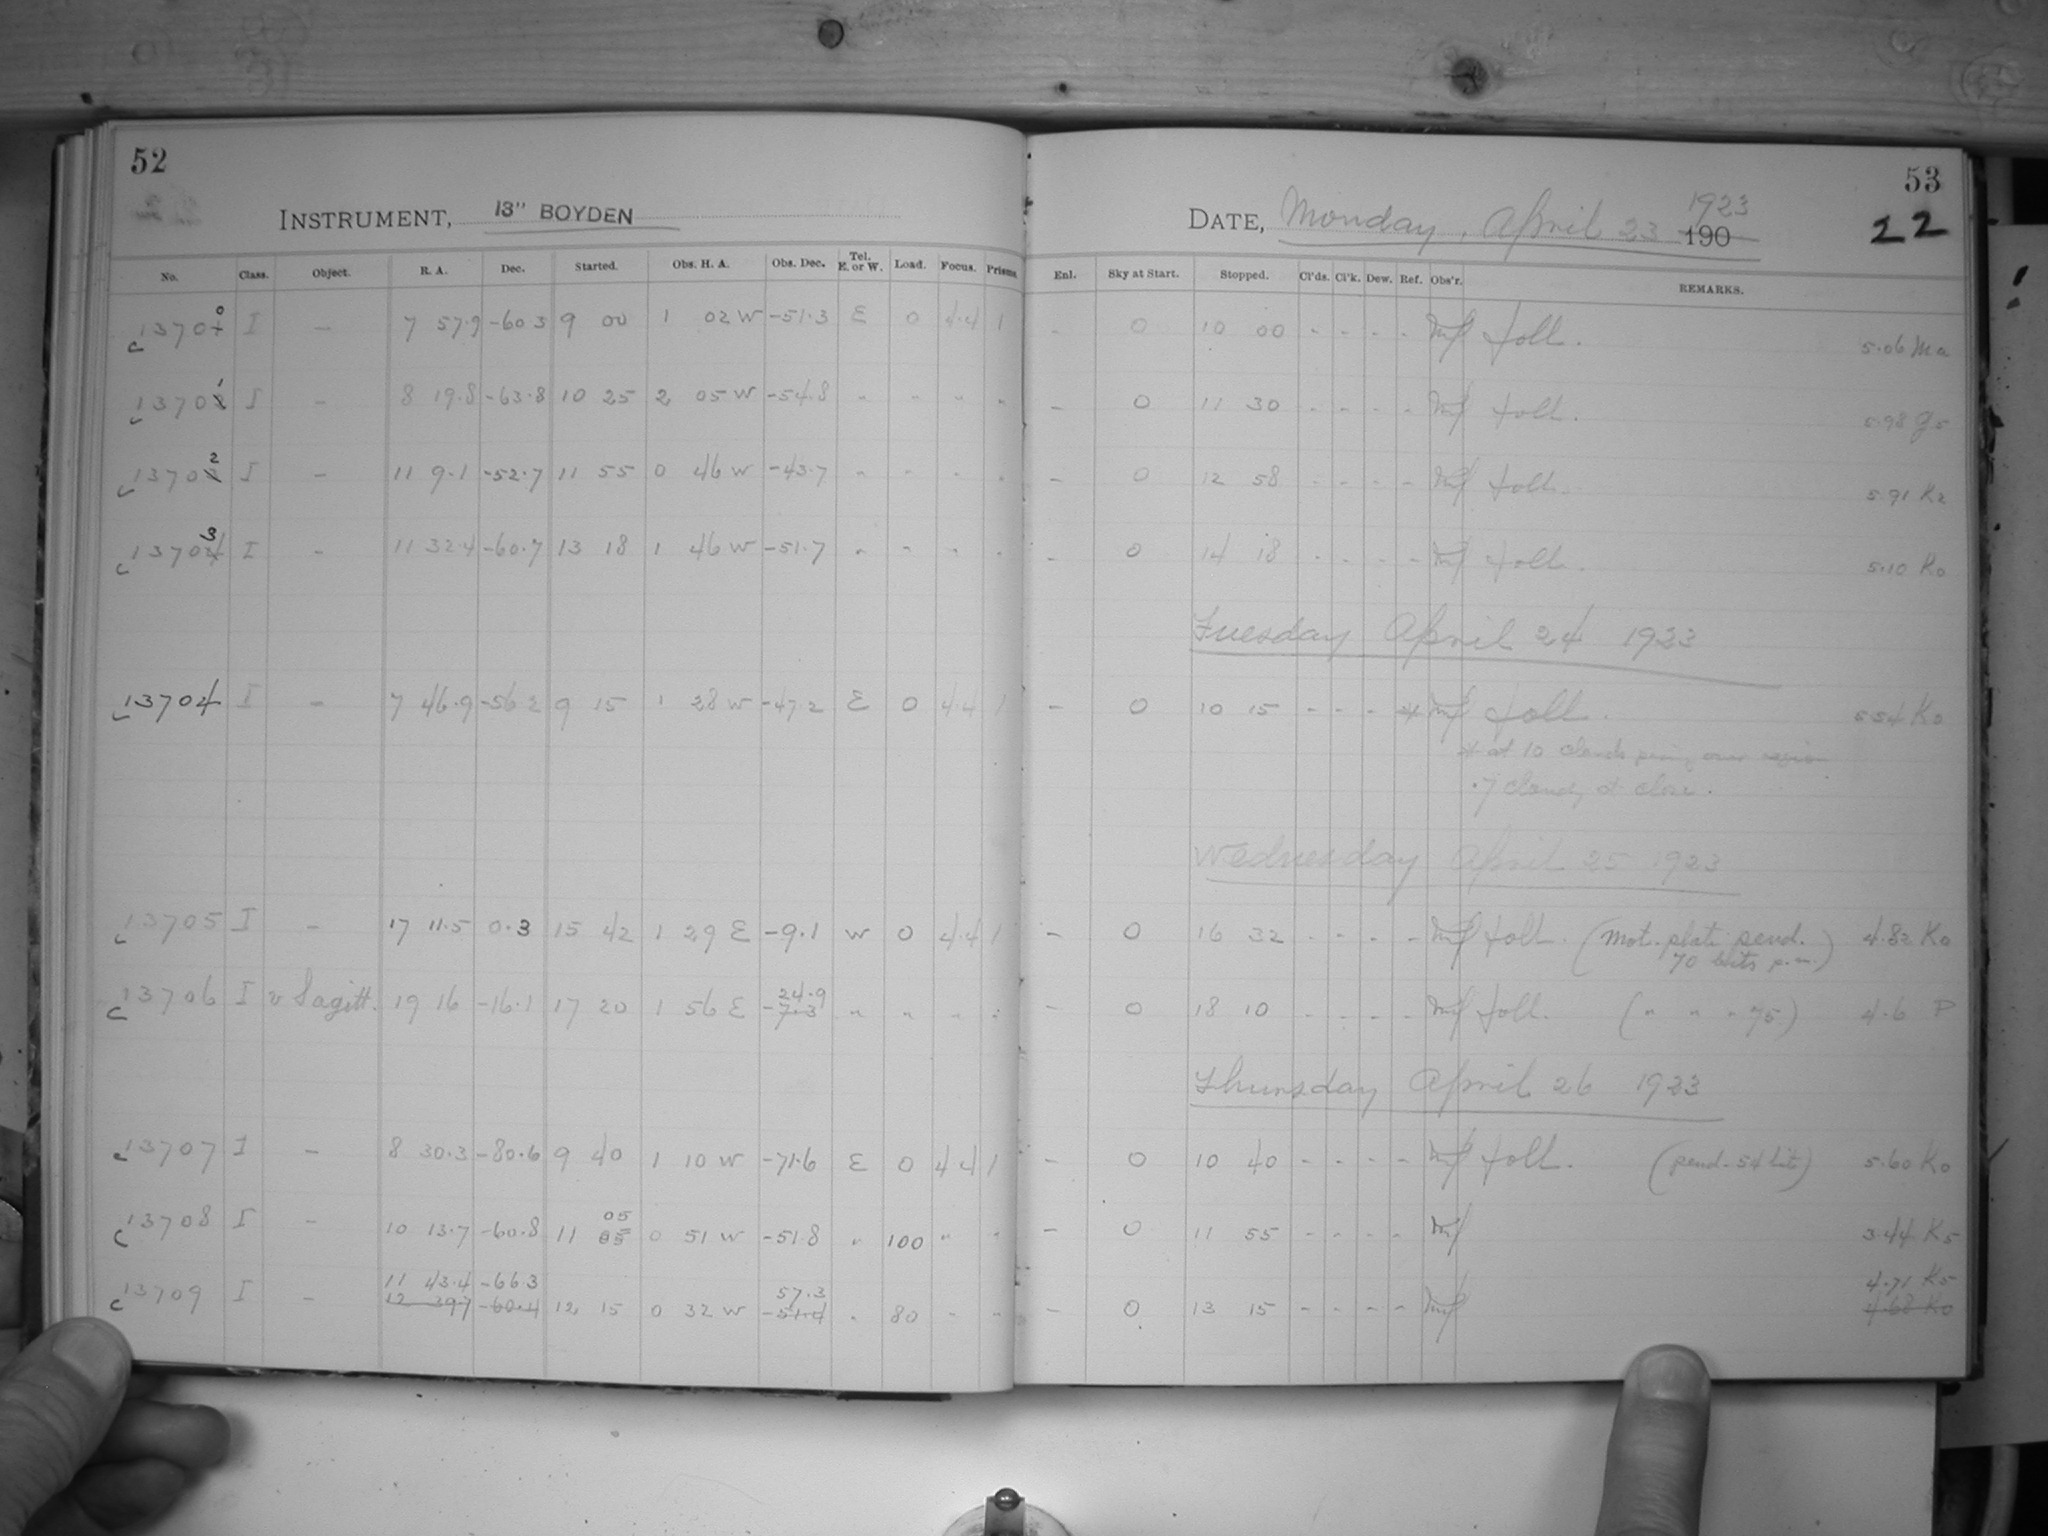 52
INSTRUMENT, 13" BOYDEN
No. Class. Object. R. A. Dec. Started. Obs. H. A. Obs. Dec. Tel. E. or W. Load. Focus. Prisms.
13700 I - 7 57.9 -60.3 9 00 1 02 W -51.3 E 0 4.4 1
13701 I - 8 19.8 -63.8 10 25 2 05 W -54.8 " " " "
13702 I - 11 9.1 -52.7 11 55 0 46 W -43.7 " " " "
13703 I - 11 32.4 -60.7 13 18 1 46 W -51.7 " " " "
13704 I - 7 46.9 -56.2 9 15 1 28 W -47.2 E 0 4.4 1
13705 I - 17 11.5 0.3 15 42 1 29 E -9.1 W 0 4.4 1
24.9
13706 I v Sagitt. 19 16 -16.1 17 20 1 56 E -7.3 " " " "
13707 I - 8 30.3 -80.6 9 40 1 10 W -71.6 E 0 4.4 1
05
13708 I - 10 13.7 -60.8 11 05 0 51 W -51.8 " 100 " "
11 43.4 -66.3 57.3
13709 I - 12 39.7 -60.4 12 15 0 32 W -51.4 " 80 " "
53
22
DATE, Monday, April 23 1923 190
Enl. Sky at Start. Stopped. Cl'ds. Cl'k. Dew. Ref. Obs'r. REMARKS.
- 0 10 00 - - - - foll. 5.06 Ma
- 0 11 30 - - - - foll. 5.98 G5
- 0 12 58 - - - - foll. 5.91 K2
- 0 14 18 - - - - foll. 5.10 K0
Tuesday April 24 1923
- 0 10 15 - - - * foll. 5.54 K0
* at 10 clouds over region
.7 cloudy at close.
Wednesday April 25 1923
- 0 16 32 - - - - foll. (Mot. plate pend. 4.82 K0
70 bits p.m.)
- 0 18 10 - - - - foll. ( " " " 75) 4.6 P
Thursday April 26 1923
- 0 10 40 - - - - foll. (pend. 54 bits) 5.60 K0
- 0 11 55 - - - - 3.44 K5
4.71 K5
- 0 13 15 - - - - 4.68 K0